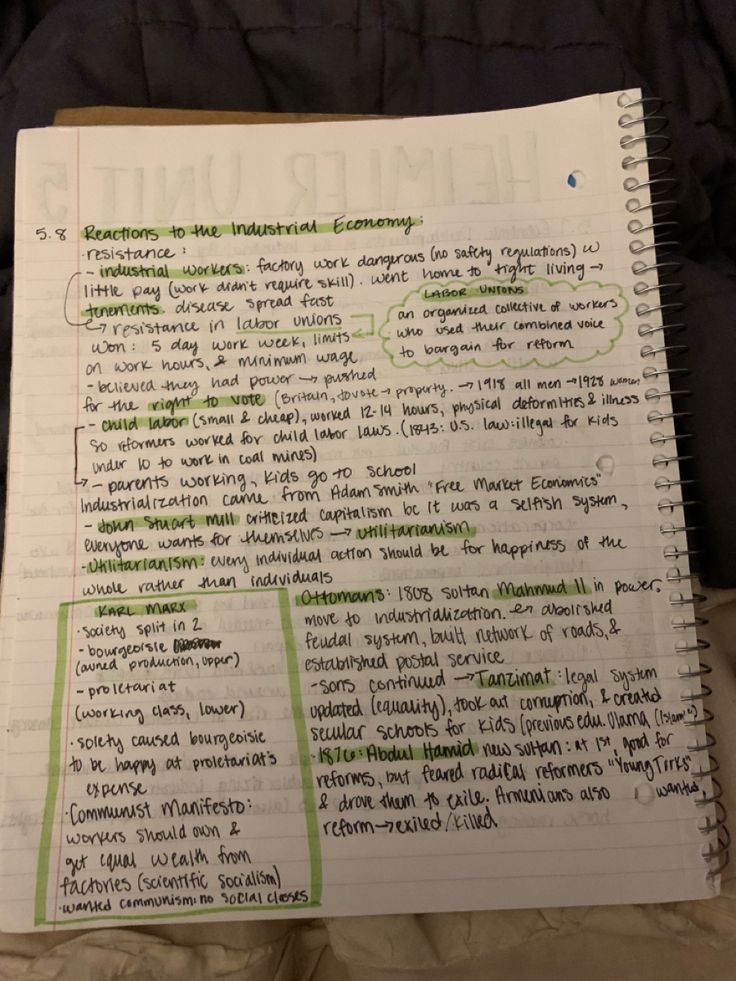 5.8 Reactions to the Industrial Economy:
· resistance:
- industrial workers: factory work dangerous (no safety regulations) w
little pay (work didn't require skill). went home to tight living →
tenements. disease spread fast
→ resistance in labor unions
won: 5 day work week, limits
on work hours, & minimum wage
LABOR UNIONS
an organized collective of workers
who used their combined voice
to bargain for reform
- believed they had power → pushed
for the right to vote (Britain, to vote → property. → 1918 all men → 1928 women
- child labor (small & cheap), worked 12-14 hours, physical deformities & illness
so reformers worked for child labor laws. (1843: U.S. law: illegal for kids
under 10 to work in coal mines)
→ - parents working, kids go to school
Industrialization came from Adam Smith "Free Market Economics"
- John Stuart Mill criticized capitalism bc it was a selfish system,
everyone wants for themselves → utilitarianism
- Utilitarianism: every individual action should be for happiness of the
whole rather than individuals
KARL MARX
· society split in 2
- bourgeoisie
(owned production, upper)
- proletariat
(working class, lower)
· soiety caused bourgeoisie
to be happy at proletariat's
expense
· Communist Manifesto:
workers should own &
get equal wealth from
factories (scientific socialism)
· wanted communism: no social classes
Ottomans: 1808 sultan Mahmud II in power,
move to industrialization. → abolished
feudal system, built network of roads, &
established postal service
- sons continued → Tanzimat: legal system
updated (equality), took out corruption, & created
secular schools for kids (previous edu. Ulama, (Islamic)
· 1876: Abdul Hamid new sultan: at 1st, good for
reforms, but feared radical reformers "Young Turks"
& drove them to exile. Armenians also wanted
reform → exiled/killed
HEIMLER UNIT 5